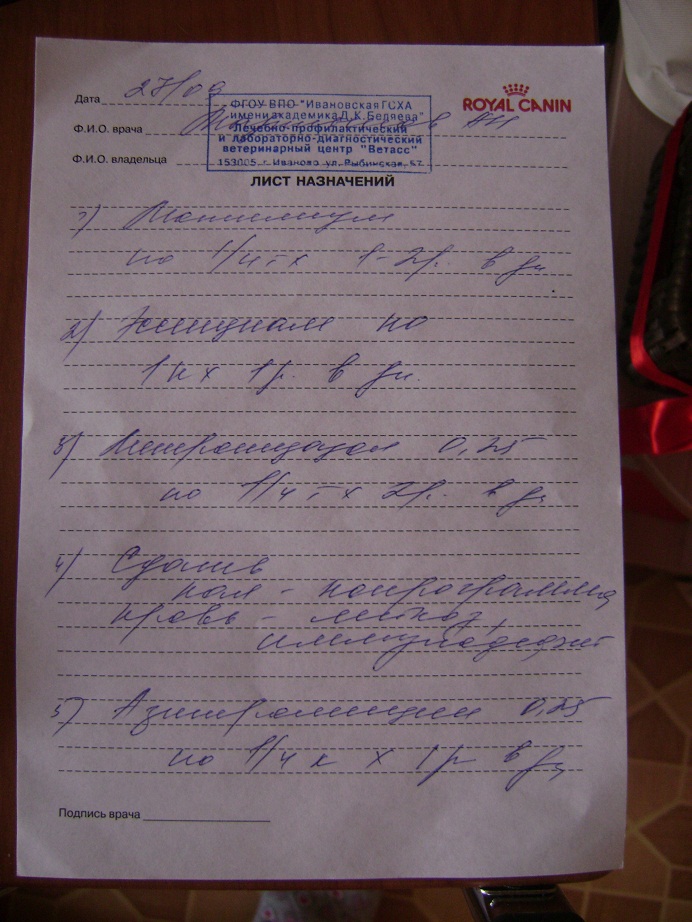 Дата 27/09
ROYAL CANIN
ФГОУ ВПО "Ивановская ГСХА
имени академика Д.К. Беляева"
Ф.И.О. врача
Лечебно-профилактический
и лабораторно-диагностический
ветеринарный центр "Ветасс"
Ф.И.О. владельца
153005 г. Иваново ул. Рыбинская, 57
ЛИСТ НАЗНАЧЕНИЙ
1)
по 1/4 т х 1-2 р. в дн
2) Энтцнам по
1 к х 1 р. в дн.
3) Метронидазол 0,25
по 1/4 т х 2 р. в дн
4) Сдать
кал - копрограмма
кровь - лейкоз,
иммунодефицит
5) Азитромицин 0,25
по 1/4 к х 1 р в дн
Подпись врача